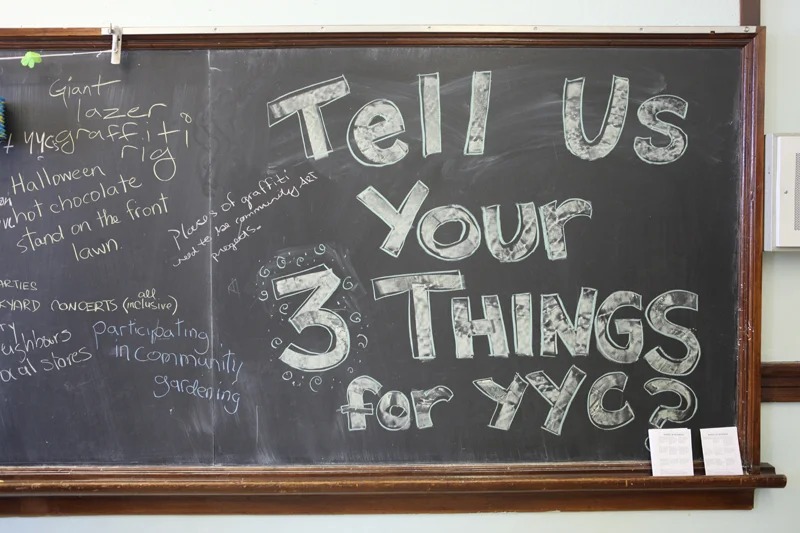 Giant
lazer
graffiti
rig
yycs
Halloween
hot chocolate
stand on the front
lawn.
Places of graffiti
need to be community art
projects.
ARTIES
KYARD CONCERTS (all inclusive)
ighbours
ocal stores
participating
in community
gardening
Tell Us
Your
3 THINGS
for YYC?